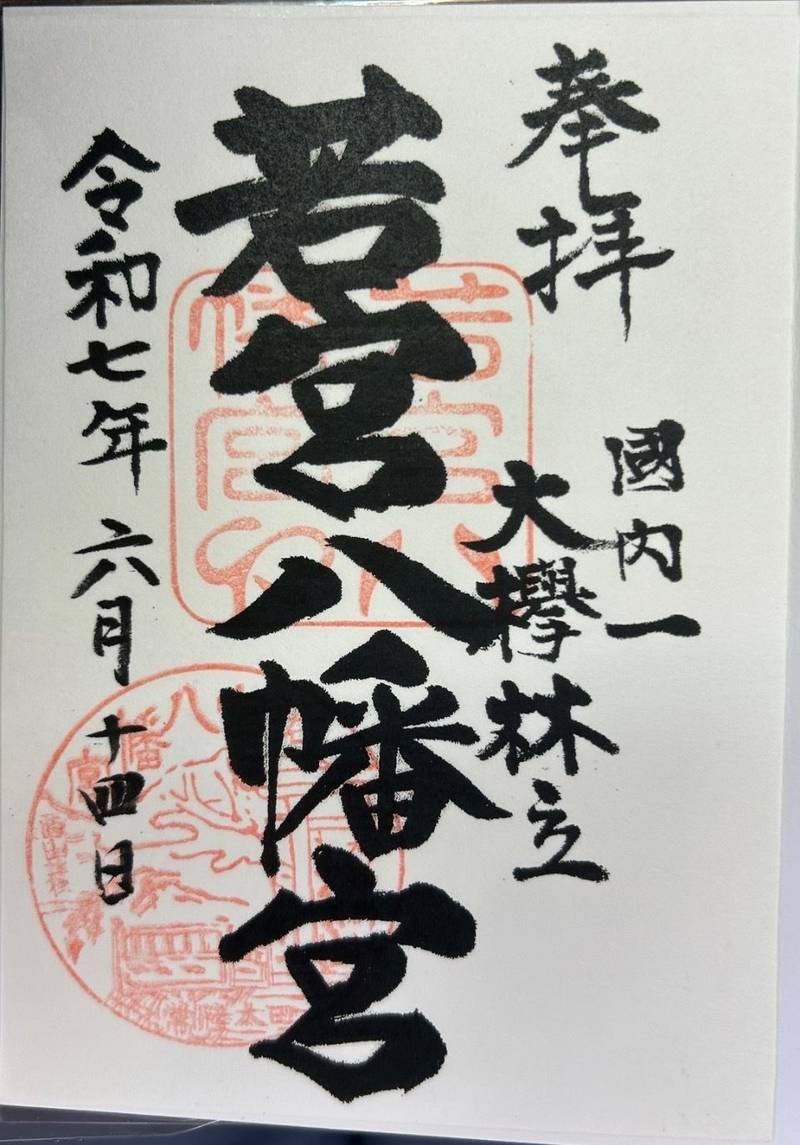 奉拝
國内一
大欅林立
若宮八幡宮
令和七年六月十四日
若宮八
八幡宮
常陸太田